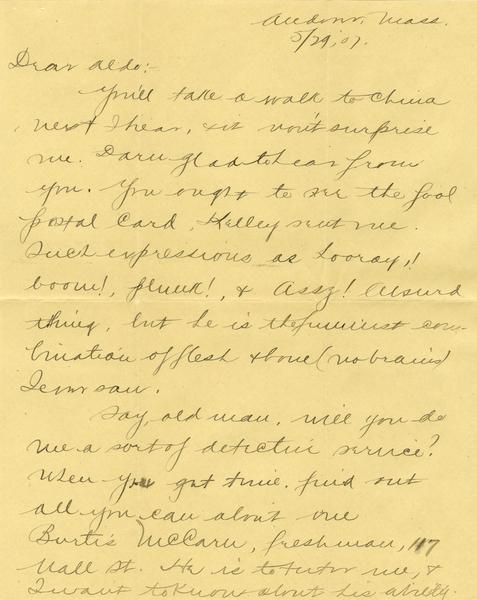 Andover, Mass.
5/29,'07.
Dear Aldo:-
You'll take a walk to China
next I hear, & it won't surprise
me. Darn glad to hear from
you. You ought to see the fool
postal card, Kelley sent me.
Such expressions as hooray,!
boom!, plunk!, & Assz! Absurd
thing, but he is the funniest com-
bination of flesh & bone (no brains)
I ever saw.
Say, old man, will you do
me a sort of detective service?
When you get time, find out
all you can about one
Burtis McCarn, freshman, 117
Wall St. He is to tutor me, &
I want to know about his ability.